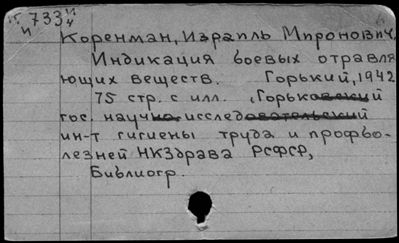 733
Коренман, Израиль Миронович.
Индикация боевых отравля
ющих веществ. Горький, 1942
75 стр. с илл. (Горьковский
гос. научно исследовательский
ин-т гигиены труда и профбо-
лезней НКЗдрава РСФСР,
Библиогр.